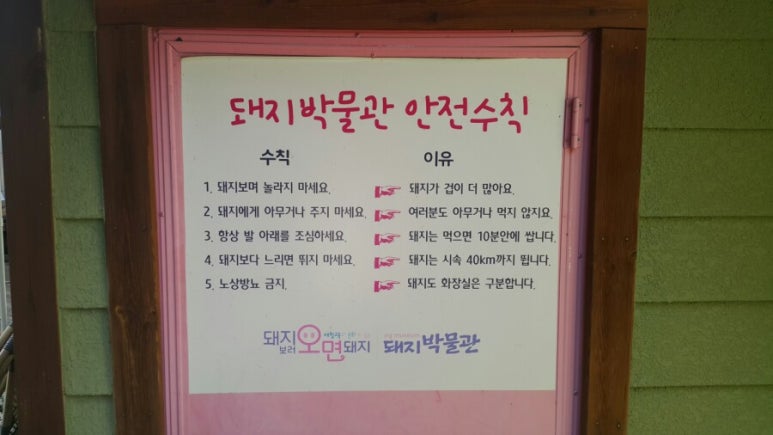 돼지박물관 안전수칙
수칙 이유
1. 돼지보며 놀라지 마세요. 돼지가 겁이 더 많아요.
2. 돼지에게 아무거나 주지 마세요. 여러분도 아무거나 먹지 않지요.
3. 항상 발 아래를 조심하세요. 돼지는 먹으면 10분안에 쌉니다.
4. 돼지보다 느리면 뛰지 마세요. 돼지는 시속 40km까지 뜁니다.
5. 노상방뇨 금지. 돼지도 화장실은 구분합니다.
돼지
보러
오면돼지
돼지박물관